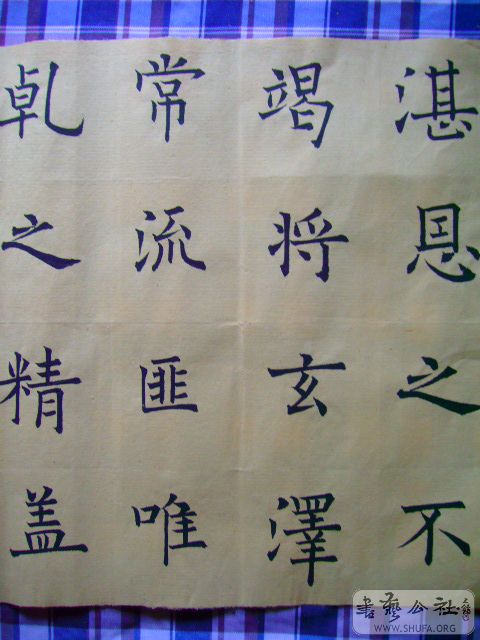 湛恩之不
竭将玄澤
常流匪唯
乹之精盖
書藝公社
WWW.SHUFA.ORG